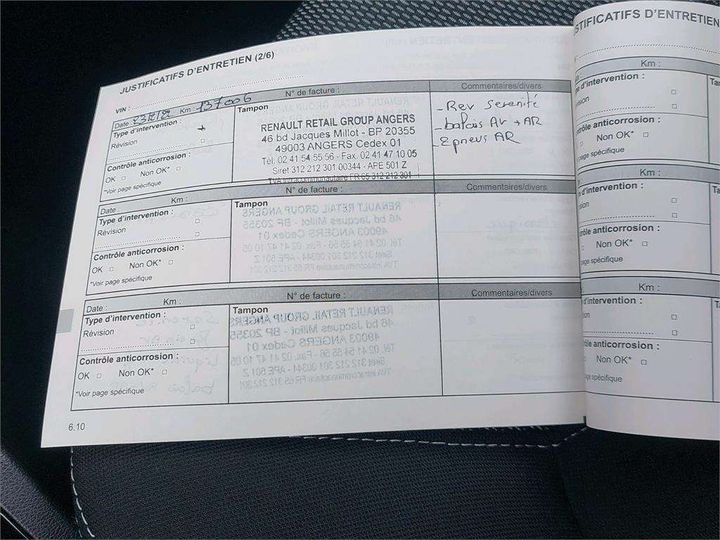 JUSTIFICATIFS D'ENTRETIEN (2/6)
VIN :
Date : Km : 137006
N° de facture :
Commentaires/divers
Type d'intervention :
Révision
Contrôle anticorrosion :
OK □ Non OK* □
*Voir page spécifique
Tampon
RENAULT RETAIL GROUP ANGERS
46 bd Jacques Millot - BP 20355
49003 ANGERS Cedex 01
Tél. 02 41 54 55 56 - Fax. 02 41 47 10 05
Siret 312 212 301 00344 - APE 501 Z
TVA Intracommunautaire FR 65 312 212 301
- Rev serenité
- balais Av + AR
- 2 pneus AR
Date : Km :
N° de facture :
Commentaires/divers
Type d'intervention :
Révision
Contrôle anticorrosion :
OK □ Non OK* □
*Voir page spécifique
Tampon
Date : Km :
N° de facture :
Commentaires/divers
Type d'intervention :
Révision
Contrôle anticorrosion :
OK □ Non OK* □
*Voir page spécifique
Tampon
6.10
STIFICATIFS D'ENTRETIEN
Km :
intervention :
anticorrosion :
Non OK* □
spécifique
Km :
intervention :
anticorrosion :
Non OK* □
spécifique
Km :
intervention :
anticorrosion :
Non OK* □
spécifique